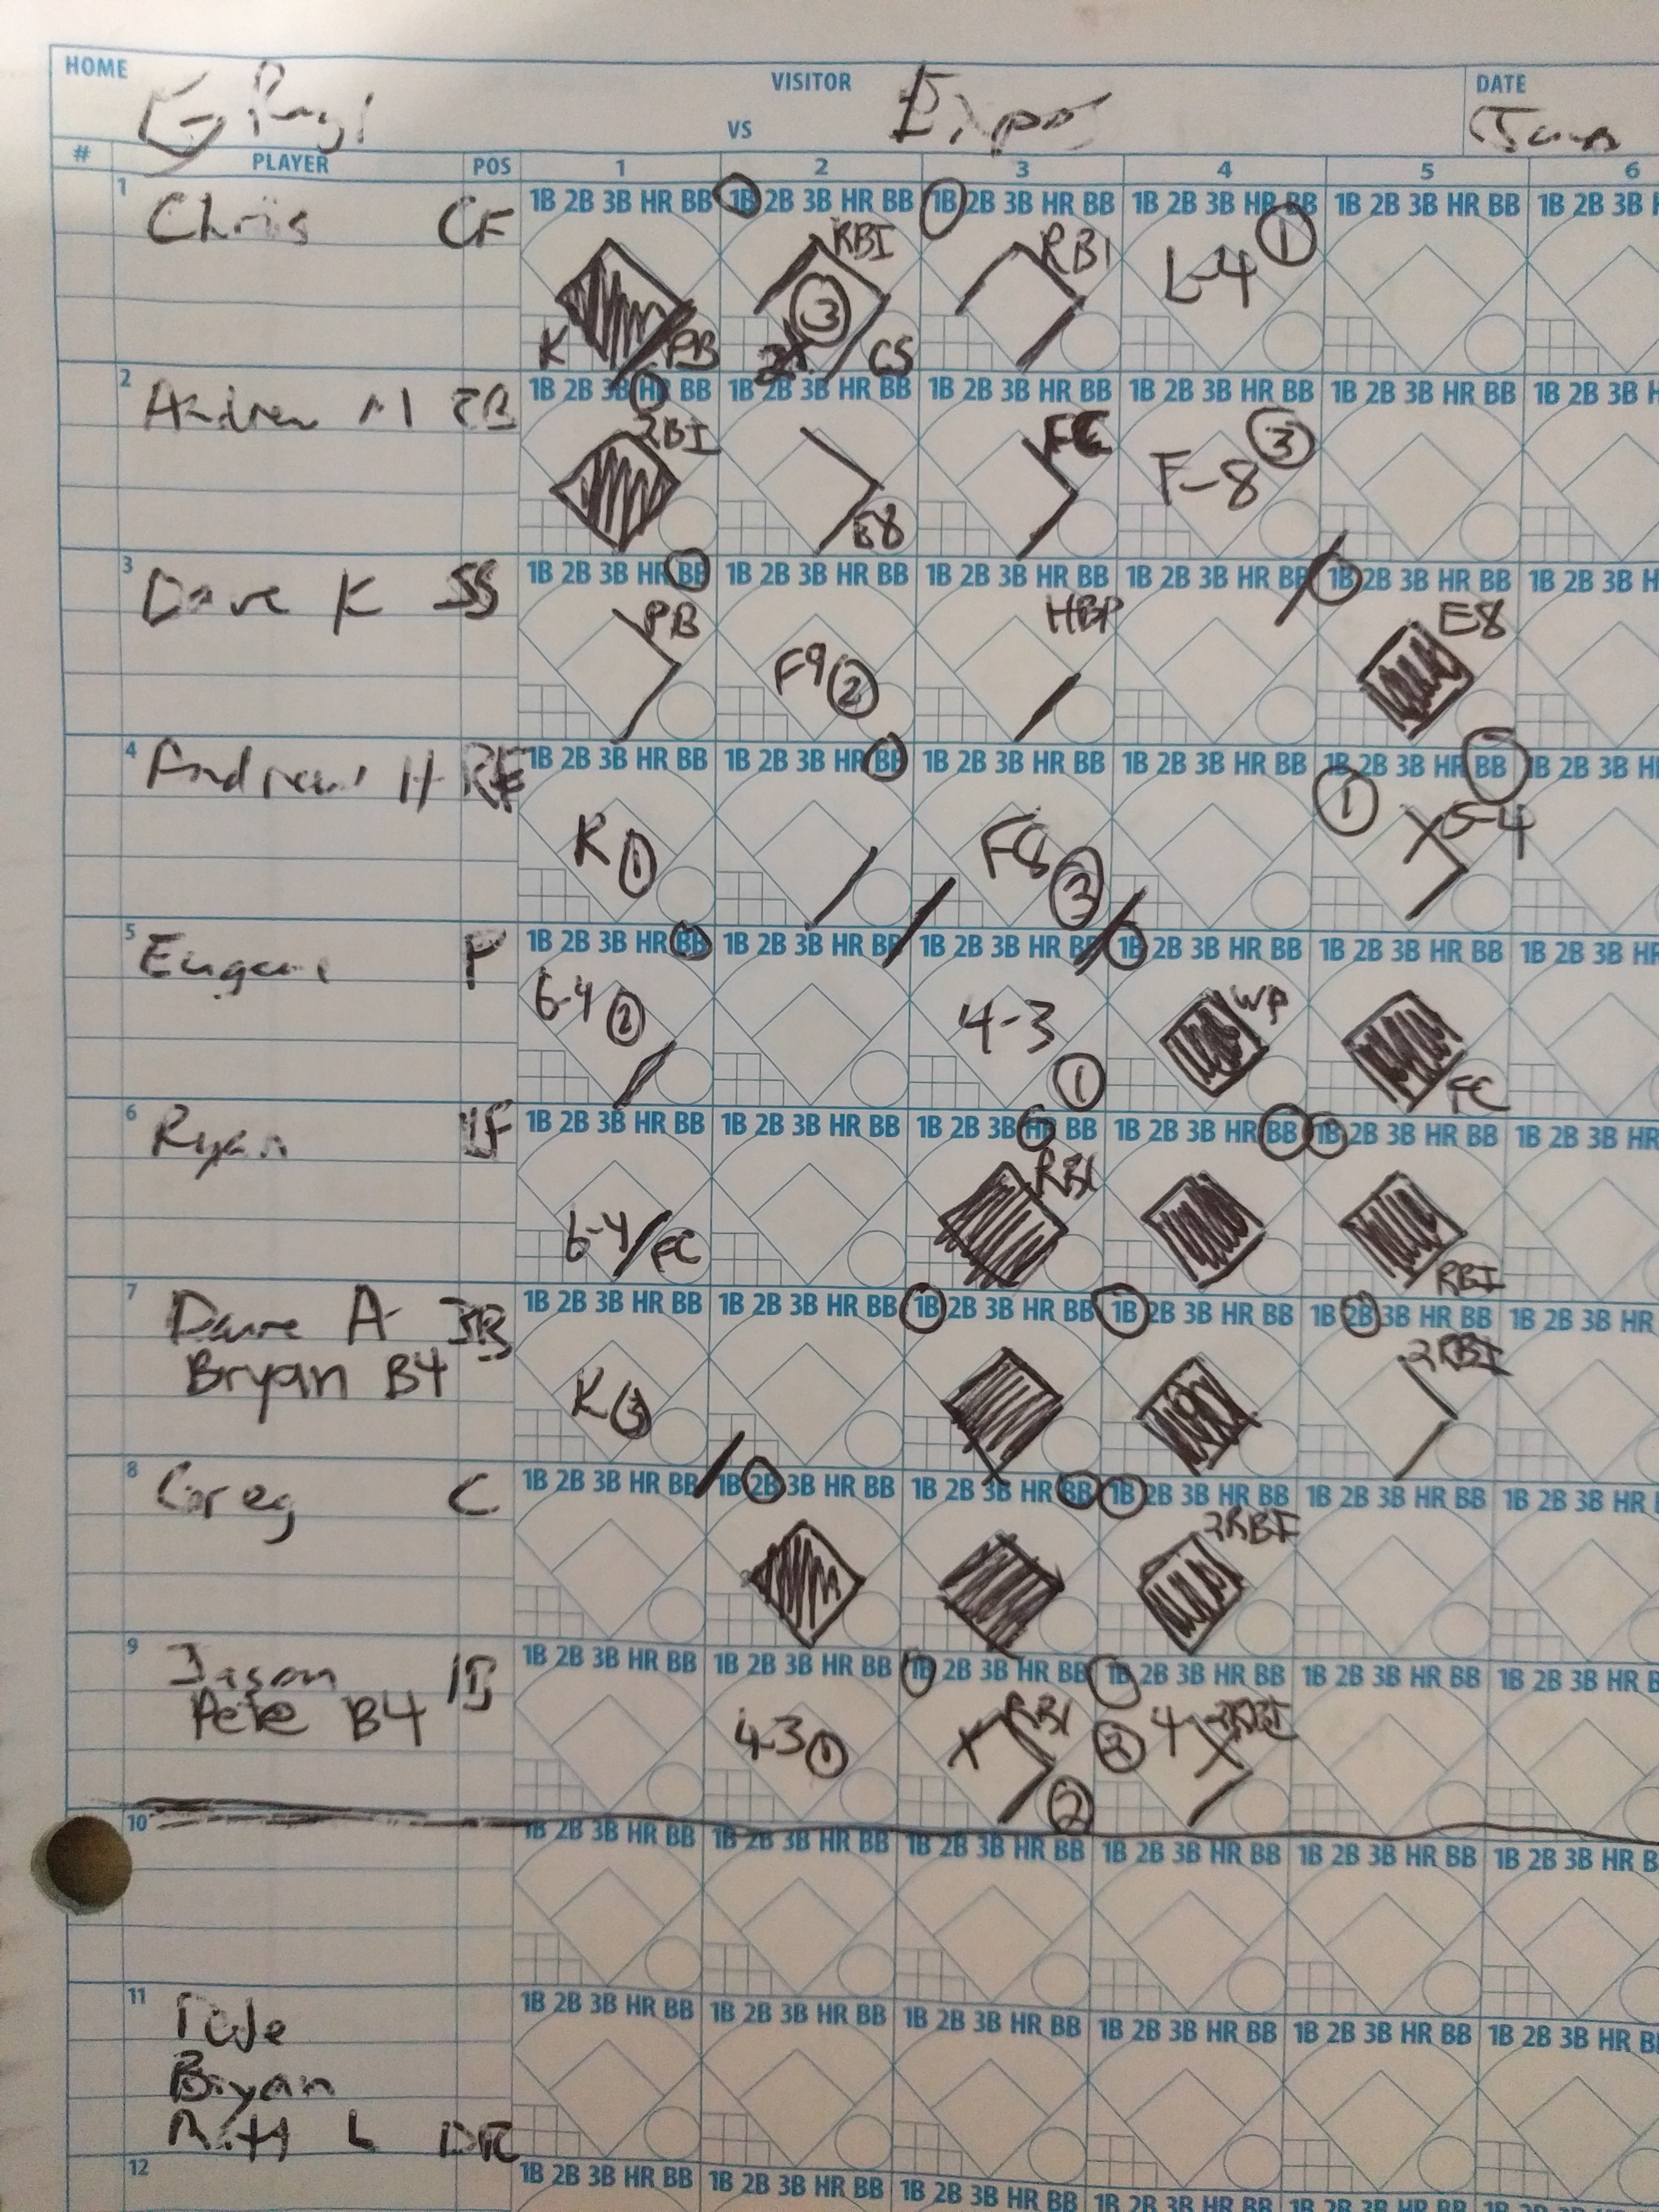 HOME VISITOR DATE
VS Expos
# PLAYER POS 1 2 3 4 5 6
1 Chris CF 1B 2B 3B HR BB 1B 2B 3B HR BB 1B 2B 3B HR BB 1B 2B 3B HR BB 1B 2B 3B HR BB 1B 2B 3B
K PB RBI 3 CS RBI L-4 1
2 Andrew M 1B 2B 3B HR BB 1B 2B 3B HR BB 1B 2B 3B HR BB 1B 2B 3B HR BB 1B 2B 3B HR BB 1B 2B 3B
2BI E8 FC F-8 3
3 Dave K SS 1B 2B 3B HR BB 1B 2B 3B HR BB 1B 2B 3B HR BB 1B 2B 3B HR BB 1B 2B 3B HR BB 1B 2B 3B
PB F9 2 HBP E8
4 Andrew H RF 1B 2B 3B HR BB 1B 2B 3B HR BB 1B 2B 3B HR BB 1B 2B 3B HR BB 1B 2B 3B HR BB 1B 2B 3B
K 1 F8 3 1 5-4
5 Eugene P 1B 2B 3B HR BB 1B 2B 3B HR BB 1B 2B 3B HR BB 1B 2B 3B HR BB 1B 2B 3B HR BB 1B 2B 3B HR
6-4 2 4-3 1 WP FC
6 Ryan LF 1B 2B 3B HR BB 1B 2B 3B HR BB 1B 2B 3B HR BB 1B 2B 3B HR BB 1B 2B 3B HR BB 1B 2B 3B HR
6-4/FC RBI RBI
7 Dave A 3B 1B 2B 3B HR BB 1B 2B 3B HR BB 1B 2B 3B HR BB 1B 2B 3B HR BB 1B 2B 3B HR BB 1B 2B 3B HR
Bryan B4 K 3 2RBI
8 Greg C 1B 2B 3B HR BB 1B 2B 3B HR BB 1B 2B 3B HR BB 1B 2B 3B HR BB 1B 2B 3B HR BB 1B 2B 3B HR
2RBI
9 Jason 1B 1B 2B 3B HR BB 1B 2B 3B HR BB 1B 2B 3B HR BB 1B 2B 3B HR BB 1B 2B 3B HR BB 1B 2B 3B HR
Pete B4 4-3 1 RBI 2 2 4 2RBI
10 1B 2B 3B HR BB 1B 2B 3B HR BB 1B 2B 3B HR BB 1B 2B 3B HR BB 1B 2B 3B HR BB 1B 2B 3B HR
11 Pete 1B 2B 3B HR BB 1B 2B 3B HR BB 1B 2B 3B HR BB 1B 2B 3B HR BB 1B 2B 3B HR BB 1B 2B 3B HR
Bryan
Matt L
12 1B 2B 3B HR BB 1B 2B 3B HR BB 1B 2B 3B HR BB 1B 2B 3B HR BB 1B 2B 3B HR BB 1B 2B 3B HR